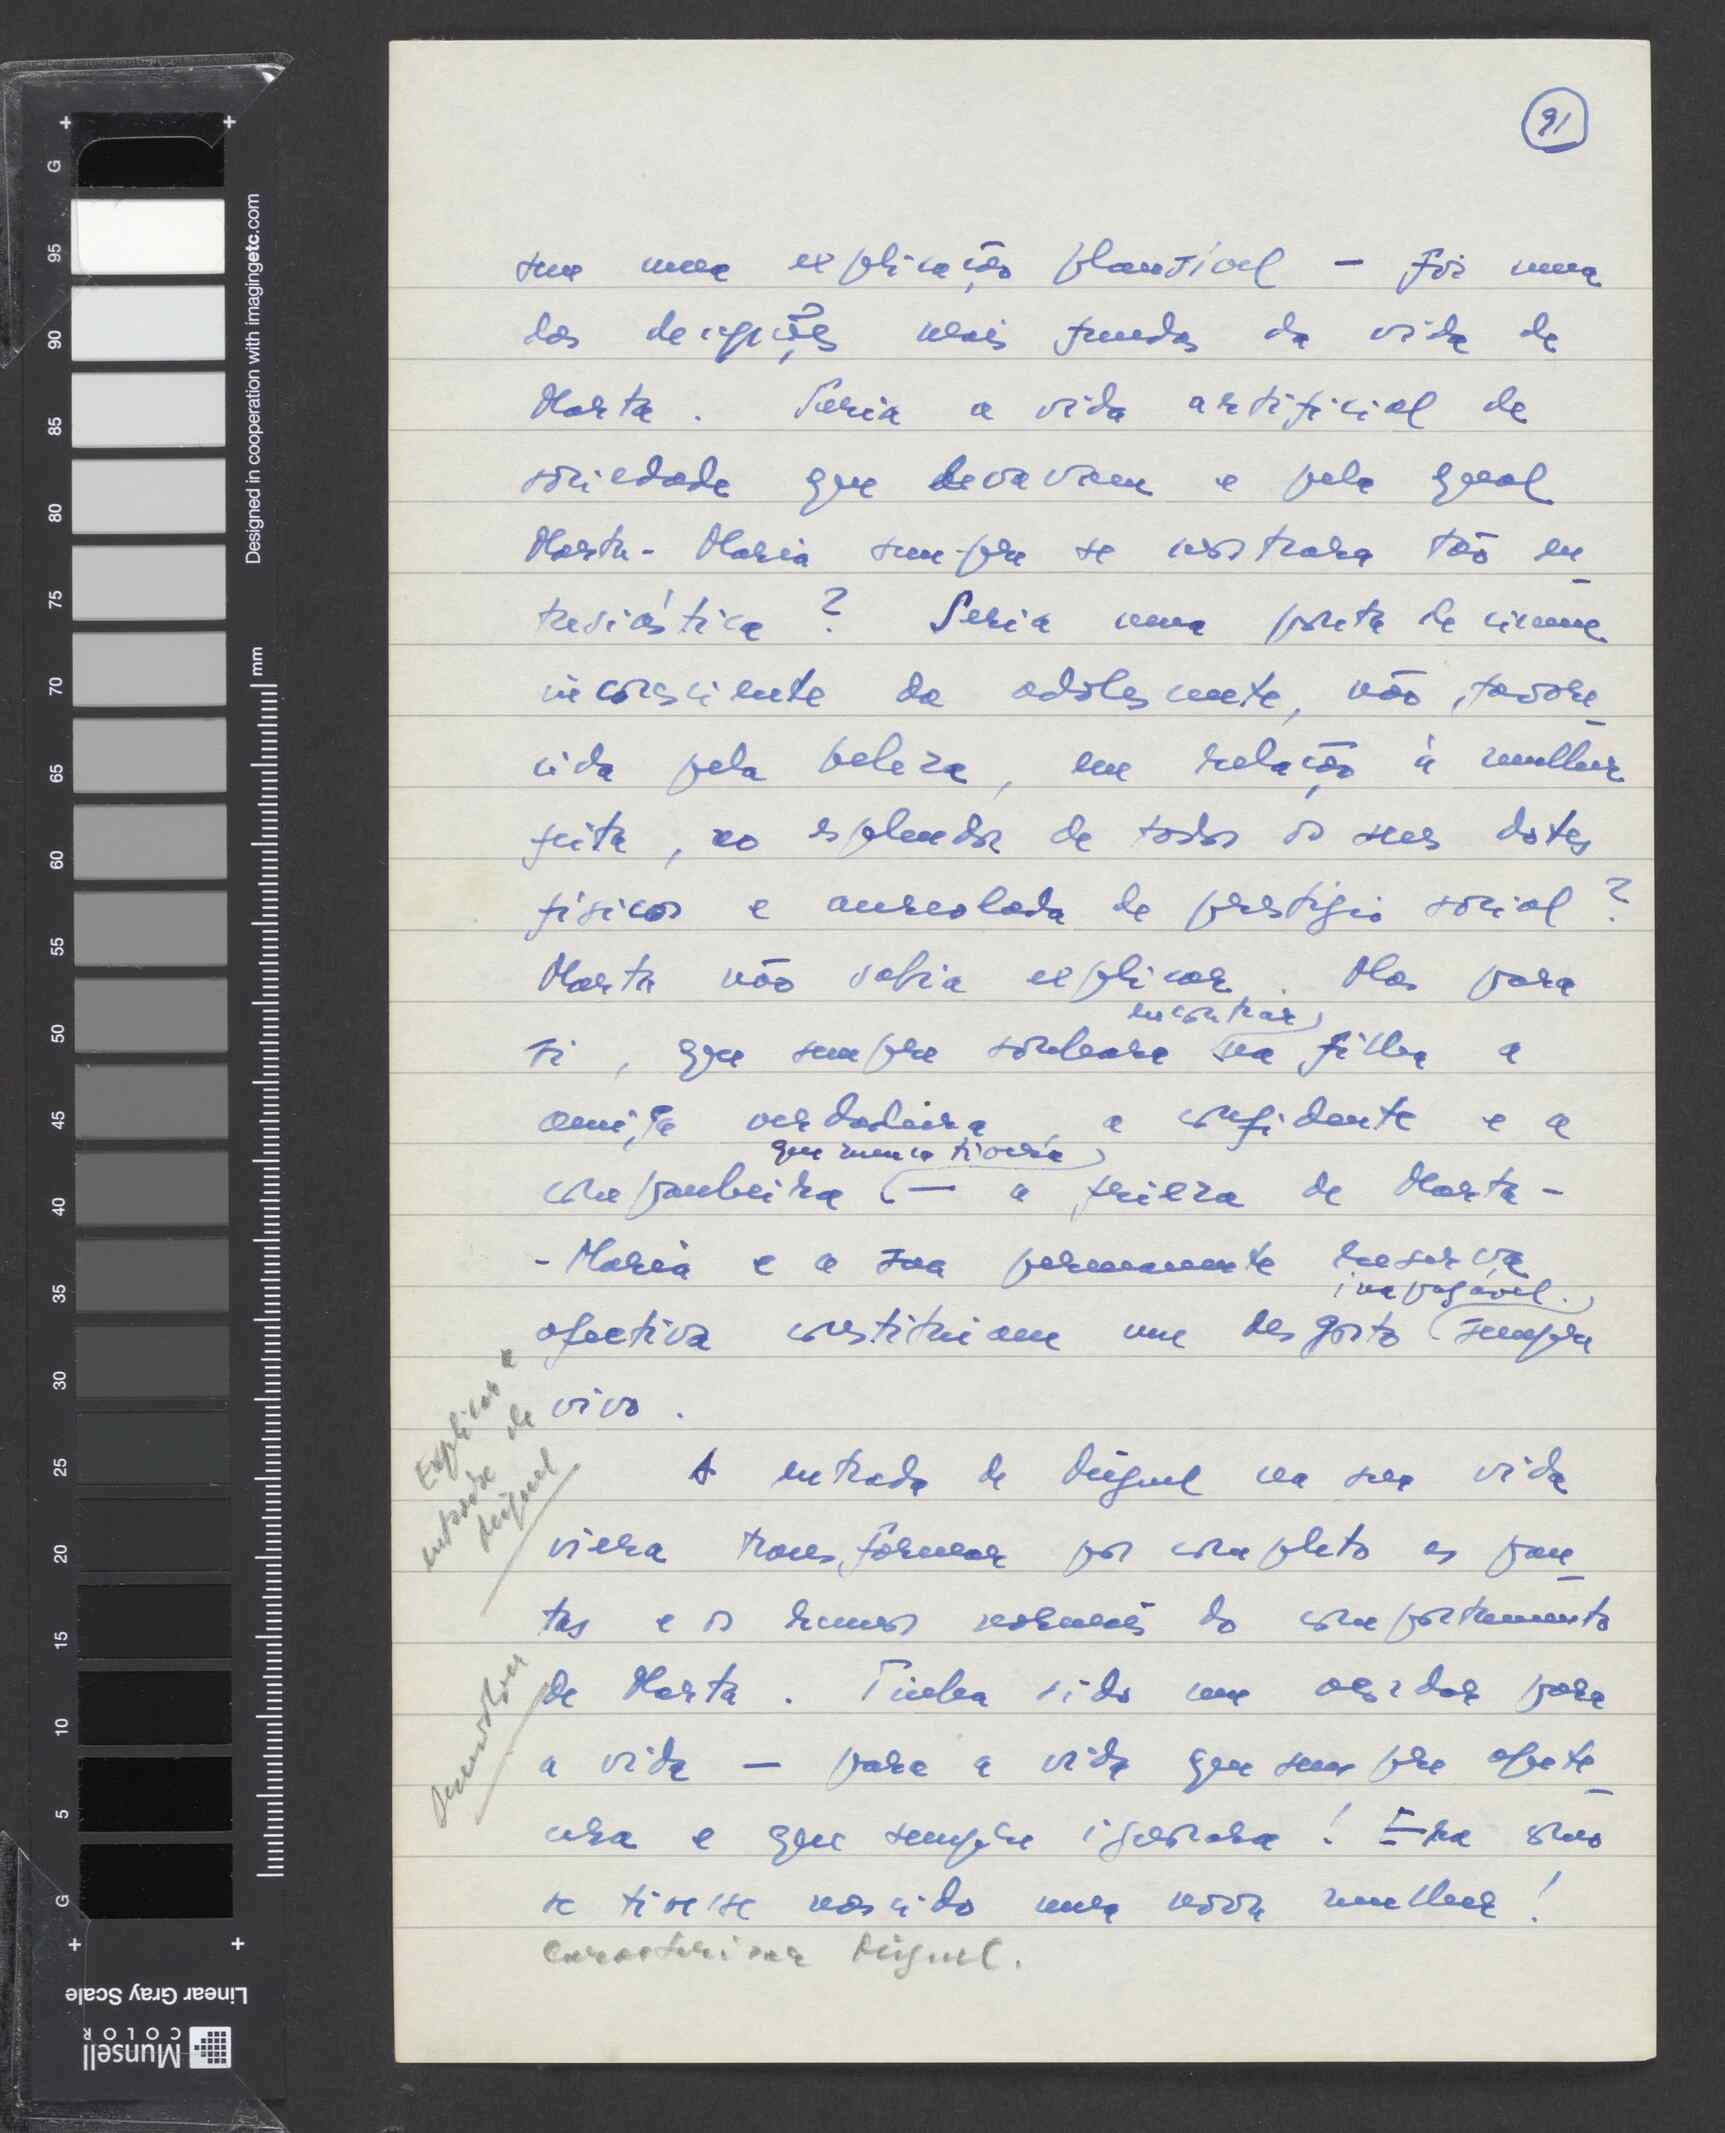 91
sem uma explicação plausível — foi uma
das decepções mais fundas da vida de
Marta. Seria a vida artificial de
sociedade que levavam e pela qual
Marta-Maria sempre se mostrara tão en-
tusiástica? Seria uma ponta de ciume
inconsciente da adolescente, não favore-
cida pela beleza, em relação à mulher
feita, no esplendor de todos os seus dotes
físicos e aureolada de prestígio social?
Marta não sabia explicar. Mas para
encontrar
si, que sempre sonhara na filha a
amiga verdadeira, a confidente e a
que nunca tivera
companheira — a frieza de Marta-
-Maria e a sua permanente reserva
inapagável.
afectiva constituiam um desgosto sempre
vivo.
Explicar a
entrada de
Miguel
A entrada de Miguel na sua vida
viera transformar por completo as pau-
tas e os rumos normais do comportamento
de Marta. Tinha sido um acordar para
a vida — para a vida que sempre apete-
cera e que sempre ignorara! Era como
se tivesse nascido uma nova mulher!
Caracterizar Miguel.